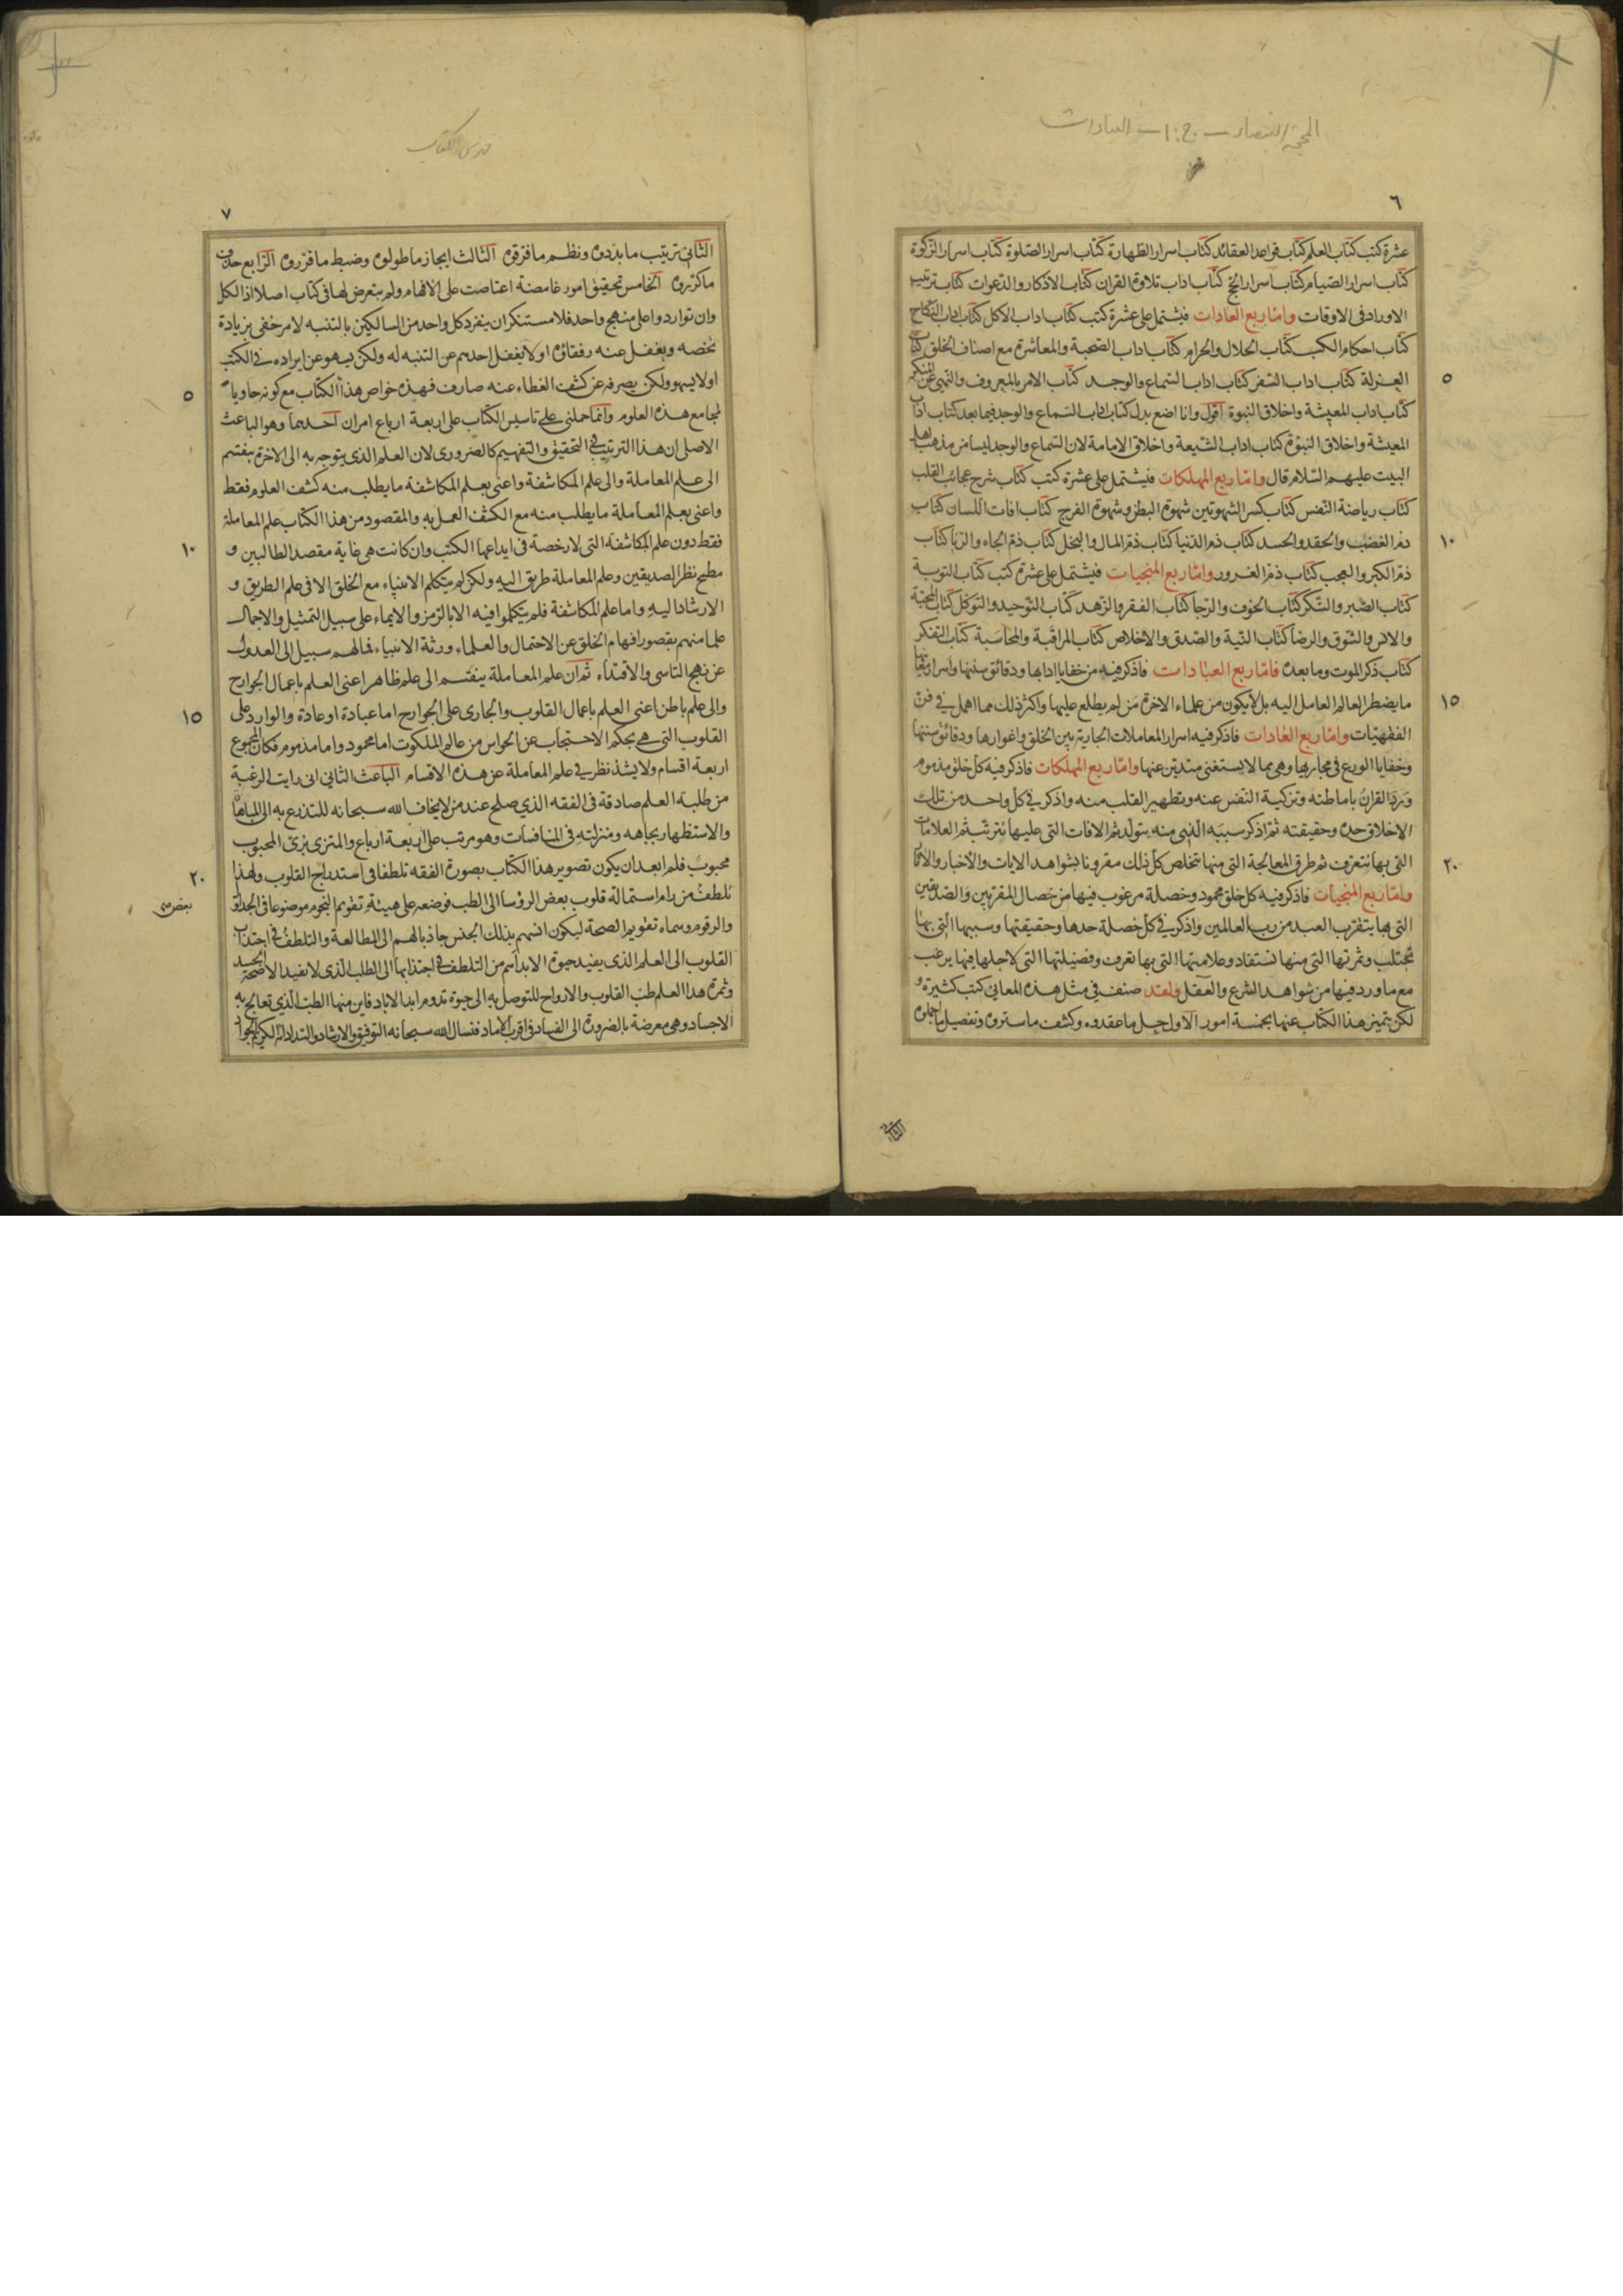 المحجة البيضاء ـ ج: ١ ـ العبادات
٦
عشرة كتب كتاب العلم كتاب قواعد العقائد كتاب اسرار الطهارة كتاب اسرار الصلوة كتاب اسرار الزكوة
كتاب اسرار الصيام كتاب اسرار الحج كتاب اداب تلاوة القران كتاب الاذكار والدعوات كتاب ترتيب
الاوراد فى الاوقات واما ربع العادات فيشتمل على عشرة كتب كتاب اداب الاكل كتاب اداب النكاح
كتاب احكام الكسب كتاب الحلال والحرام كتاب اداب الصحبة والمعاشرة مع اصناف الخلق كتاب
العزلة كتاب اداب السفر كتاب اداب السماع والوجد كتاب الامر بالمعروف والنهى عن المنكر
٥
كتاب اداب المعيشة واخلاق النبوة اقول وانا اضع بدل كتاب اداب السماع والوجد فيما بعد كتاب اداب
المعيشة واخلاق النبوة كتاب اداب الشيعة واخلاق الامامة لان السماع والوجد ليسا من مذهب اهل
البيت عليهم السلام قال واما ربع المهلكات فيشتمل على عشرة كتب كتاب شرح عجائب القلب
كتاب رياضة النفس كتاب كسر الشهوتين شهوة البطن وشهوة الفرج كتاب افات اللسان كتاب
ذم الغضب والحقد والحسد كتاب ذم الدنيا كتاب ذم المال والبخل كتاب ذم الجاه والريا كتاب
١٠
ذم الكبر والعجب كتاب ذم الغرور واما ربع المنجيات فيشتمل على عشرة كتب كتاب التوبة
كتاب الصبر والشكر كتاب الخوف والرجا كتاب الفقر والزهد كتاب التوحيد والتوكل كتاب المحبة
والانس والشوق والرضا كتاب النية والصدق والاخلاص كتاب المراقبة والمحاسبة كتاب التفكر
كتاب ذكر الموت وما بعده فاما ربع العبادات فاذكر فيه من خفايا ادابها ودقائق سننها واسرار معانيها
ما يضطر العالم العامل اليه بل لا يكون من علماء الاخرة من لم يطلع عليها واكثر ذلك مما اهمل فى فن
١٥
الفقهيات واما ربع العادات فاذكر فيه اسرار المعاملات الجارية بين الخلق واغوارها ودقائق سننها
وخفايا الورع فى مجاريها وهى مما لا يستغنى متدين عنها واما ربع المهلكات فاذكر فيه كل خلق مذموم
ورد القران باماطته وتزكية النفس عنه وتطهير القلب منه واذكر فى كل واحد من تلك
الاخلاق حده وحقيقته ثم اذكر سببه الذى منه يتولد ثم الافات التى عليها تترتب ثم العلامات
التى بها تتعرف ثم طرق المعالجة التى منها تتخلص كل ذلك مقرونا بشواهد الايات والاخبار والاثار
٢٠
واما ربع المنجيات فاذكر فيه كل خلق محمود وخصلة مرغوب فيها من خصال المقربين والصديقين
التى بها يتقرب العبد من رب العالمين واذكر فى كل خصلة حدها وحقيقتها وسببها التى بها
تجتلب وثمرتها التى منها تستفاد وعلامتها التى بها تعرف وفضيلتها التى لاجلها فيها يرغب
مع ما ورد فيها من شواهد الشرع والعقل ولقد صنف فى مثل هذه المعانى كتب كثيرة و
لكن يتميز هذا الكتاب عنها بخمسة امور الاول حل ما عقدوه وكشف ما ستروه وتفصيل ما اجملوه
الثانى
فهرس الكتاب
٧
الثانى ترتيب ما بددوه ونظم ما فرقوه الثالث ايجاز ما طولوه وضبط ما قرروه الرابع حذف
ما كرروه الخامس تحقيق امور غامضة اعتاصت على الافهام ولم يتعرض لها فى كتاب اصلا اذ الكل
وان تواردوا على منهج واحد فلا مستنكر ان ينفرد كل واحد من السالكين بالتنبه لامر خفى بزيادة
تخصه ويغفل عنه رفقاؤه او لا يغفل احدهم عن التنبه له ولكن يسهو عن ايراده فى الكتب
او لا يسهو ولكن يصرفه عن كشف الغطاء عنه صارف فهذه خواص هذا الكتاب مع كونه حاويا
٥
لمجامع هذه العلوم وانما حملنى على تاسيس الكتاب على اربعة ارباع امران احدهما وهو الباعث
الاصلى ان هذا الترتيب فى التحقيق والتفهيم كالضرورى لان العلم الذى يتوجه به الى الاخرة ينقسم
الى علم المعاملة والى علم المكاشفة واعنى بعلم المكاشفة ما يطلب منه كشف العلوم فقط
واعنى بعلم المعاملة ما يطلب منه مع الكشف العمل به والمقصود من هذا الكتاب علم المعاملة
فقط دون علم المكاشفة التى لا رخصة فى ايداعها الكتب وان كانت هى غاية مقصد الطالبين و
١٠
مطمح نظر الصديقين وعلم المعاملة طريق اليه ولكن لم يتكلم الانبياء مع الخلق الا فى علم الطريق و
الارشاد اليه واما علم المكاشفة فلم يتكلموا فيه الا بالرمز والايماء على سبيل التمثيل والاجمال
علما منهم بقصور افهام الخلق عن الاحتمال والعلماء ورثة الانبياء فما لهم سبيل الى العدول
عن نهج التاسى والاقتداء ثم ان علم المعاملة ينقسم الى علم ظاهر اعنى العلم باعمال الجوارح
والى علم باطن اعنى العلم باعمال القلوب والجارى على الجوارح اما عبادة او عادة والوارد على
١٥
القلوب التى هى بحكم الاحتجاب عن الحواس من عالم الملكوت اما محمود واما مذموم فكان المجموع
اربعة اقسام ولا يشذ نظر فى علم المعاملة عن هذه الاقسام الباعث الثانى انى رايت الرغبة
من طلبة العلم صادقة فى الفقه الذى صلح عند من لا يخاف الله سبحانه للتذرع به الى المباهاة
والاستظهار بجاهه ومنزلته فى المنافسات وهو مرتب على اربعة ارباع والمتزى بزى المحبوب
محبوب فلم ابعد ان يكون تصوير هذا الكتاب بصورة الفقه تلطفا فى استدراج القلوب ولهذا
٢٠
تلطف من رام استمالة قلوب بعض الرؤسا الى الطب فوضعه على هيئة تقويم النجوم موضوعا فى الجداول
والرقوم وسماه تقويم الصحة ليكون انسهم بذلك الجنس جاذبا لهم الى المطالعة والتلطف فى اجتذاب
القلوب الى العلم الذى يفيد حيوة الابد اهم من التلطف فى اجتذابها الى الطب الذى لا يفيد الا صحة الجسد
وثمرة هذا العلم طب القلوب والارواح للتوصل به الى حيوة تدوم ابد الاباد فاين منها الطب الذى تعالج به
الاجساد وهى معرضة بالضرورة الى الفساد فى اقرب الاماد فنسال الله سبحانه التوفيق والارشاد والسداد انه الكريم الجواد